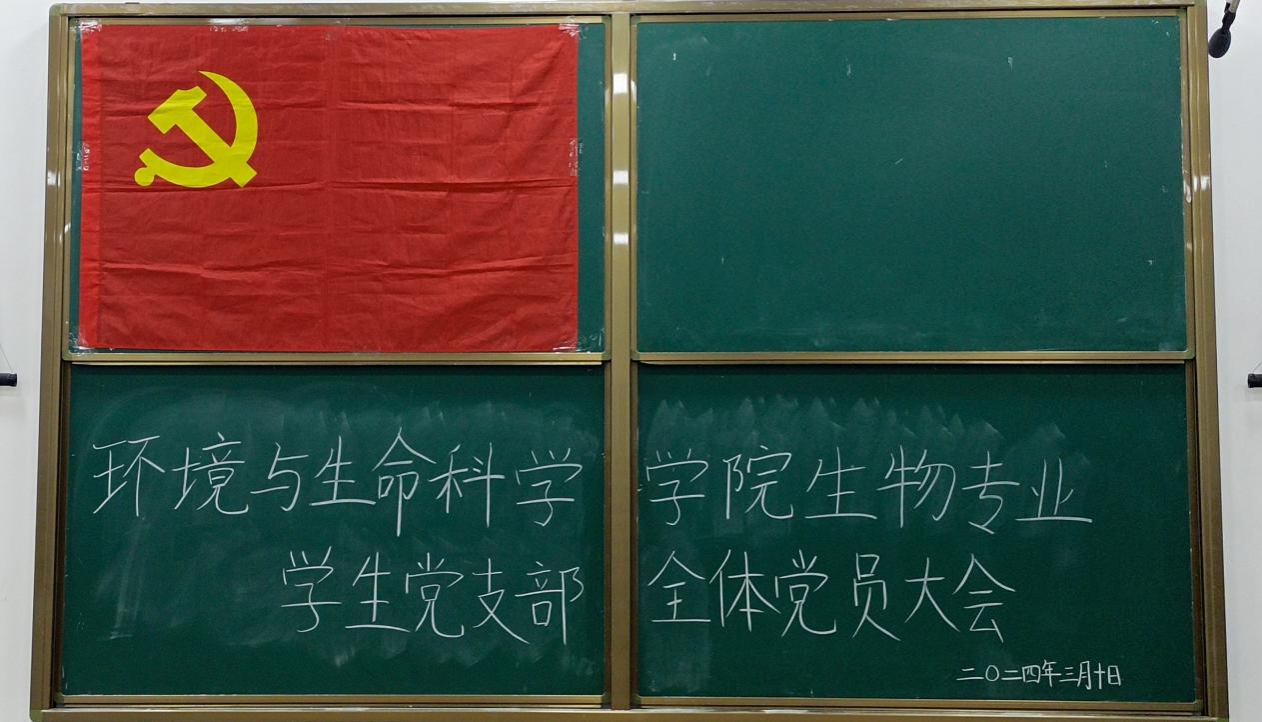 环境与生命科学学院生物专业
学生党支部全体党员大会
二〇二四年三月十日